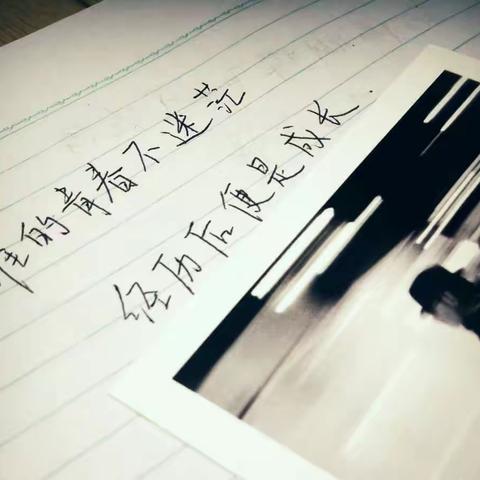 的青春不迷茫
经历后便是成长.